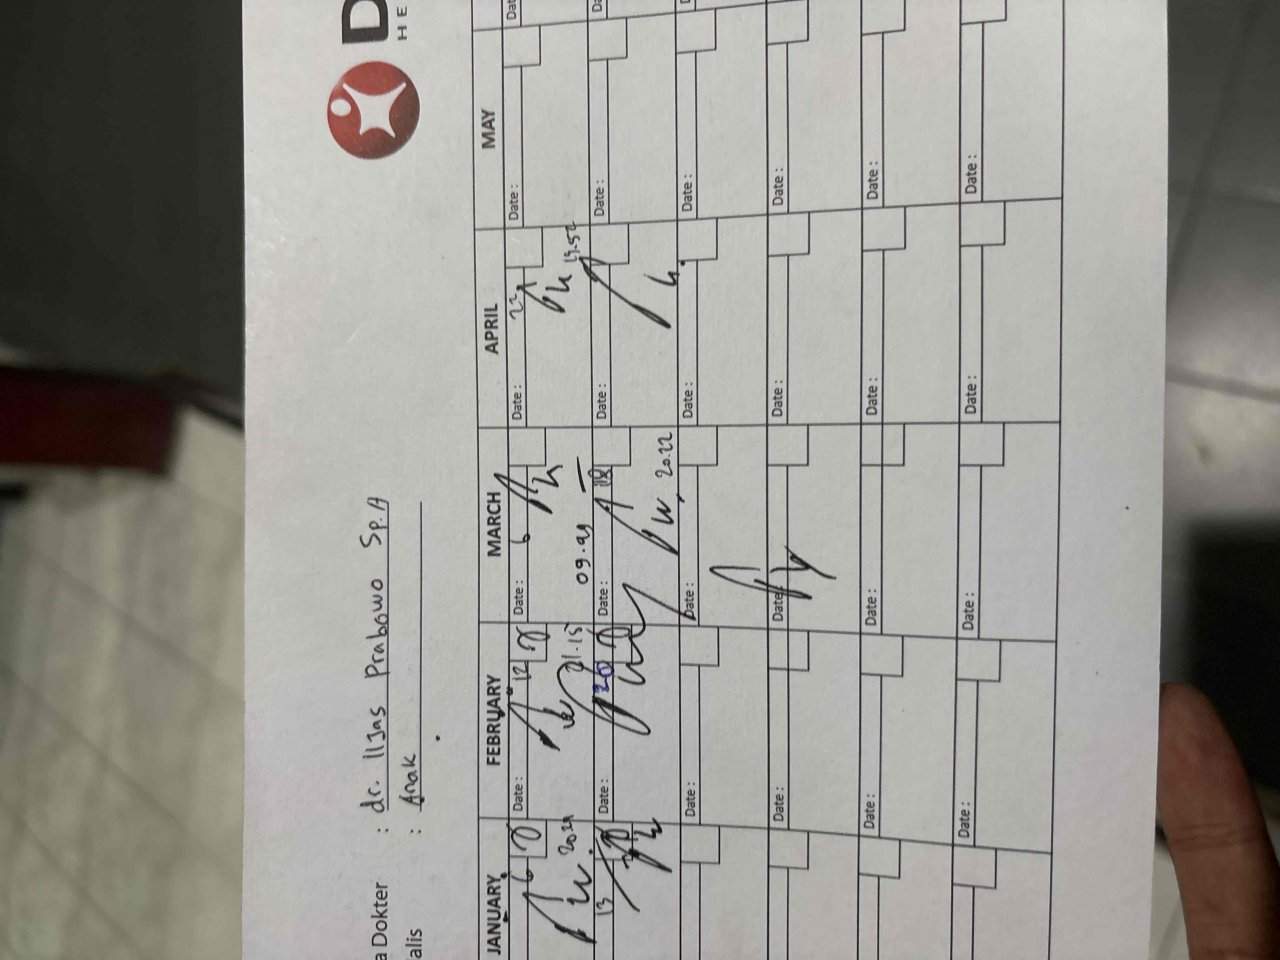 D
HE
a Dokter : dr. Iljas Prabowo Sp.A
alis : Anak
JANUARY FEBRUARY MARCH APRIL MAY
6 Date : 12 Date : 6 Date : 22 Date : Dat
2021 21.15 09.49 19.52
13 20 Date : Date : 18 Date : Date : Da
20.22
Date : Date : Date : Date : D
Date : Date : Date : Date :
Date : Date : Date : Date :
Date : Date : Date : Date :